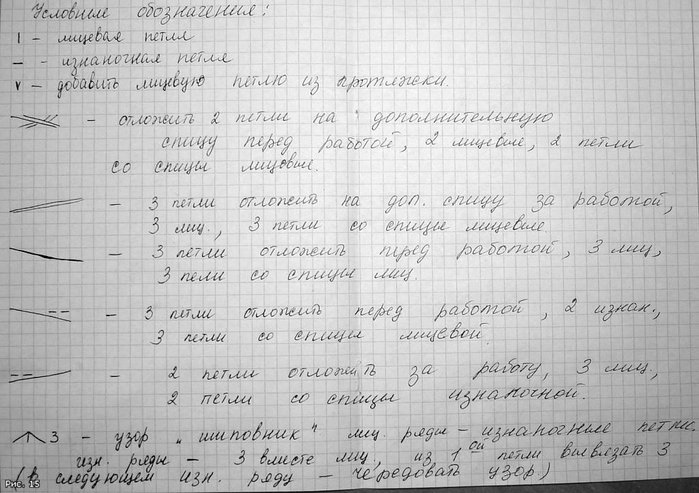 Условные обозначения:
| - лицевая петля
— - изнаночная петля
v - добавить лицевую петлю из протяжки.
- отложить 2 петли на дополнительную
спицу перед работой, 2 лицевые, 2 петли
со спицы лицевые.
- 3 петли отложить на доп. спицу за работой,
3 лиц., 3 петли со спицы лицевые.
- 3 петли отложить перед работой, 3 лиц,
3 пели со спицы лиц.
- 3 петли отложить перед работой, 2 изнан.,
3 петли со спицы лицевой.
- 2 петли отложить за работу, 3 лиц.,
2 петли со спицы изнаночной.
3 - узор "шиповник" лиц. ряды - изнаночные петли.
изн. ряды - 3 вместе лиц., из 1ой петли вывязать 3
(в следующем изн. ряду - чередовать узор)
Рис. 15